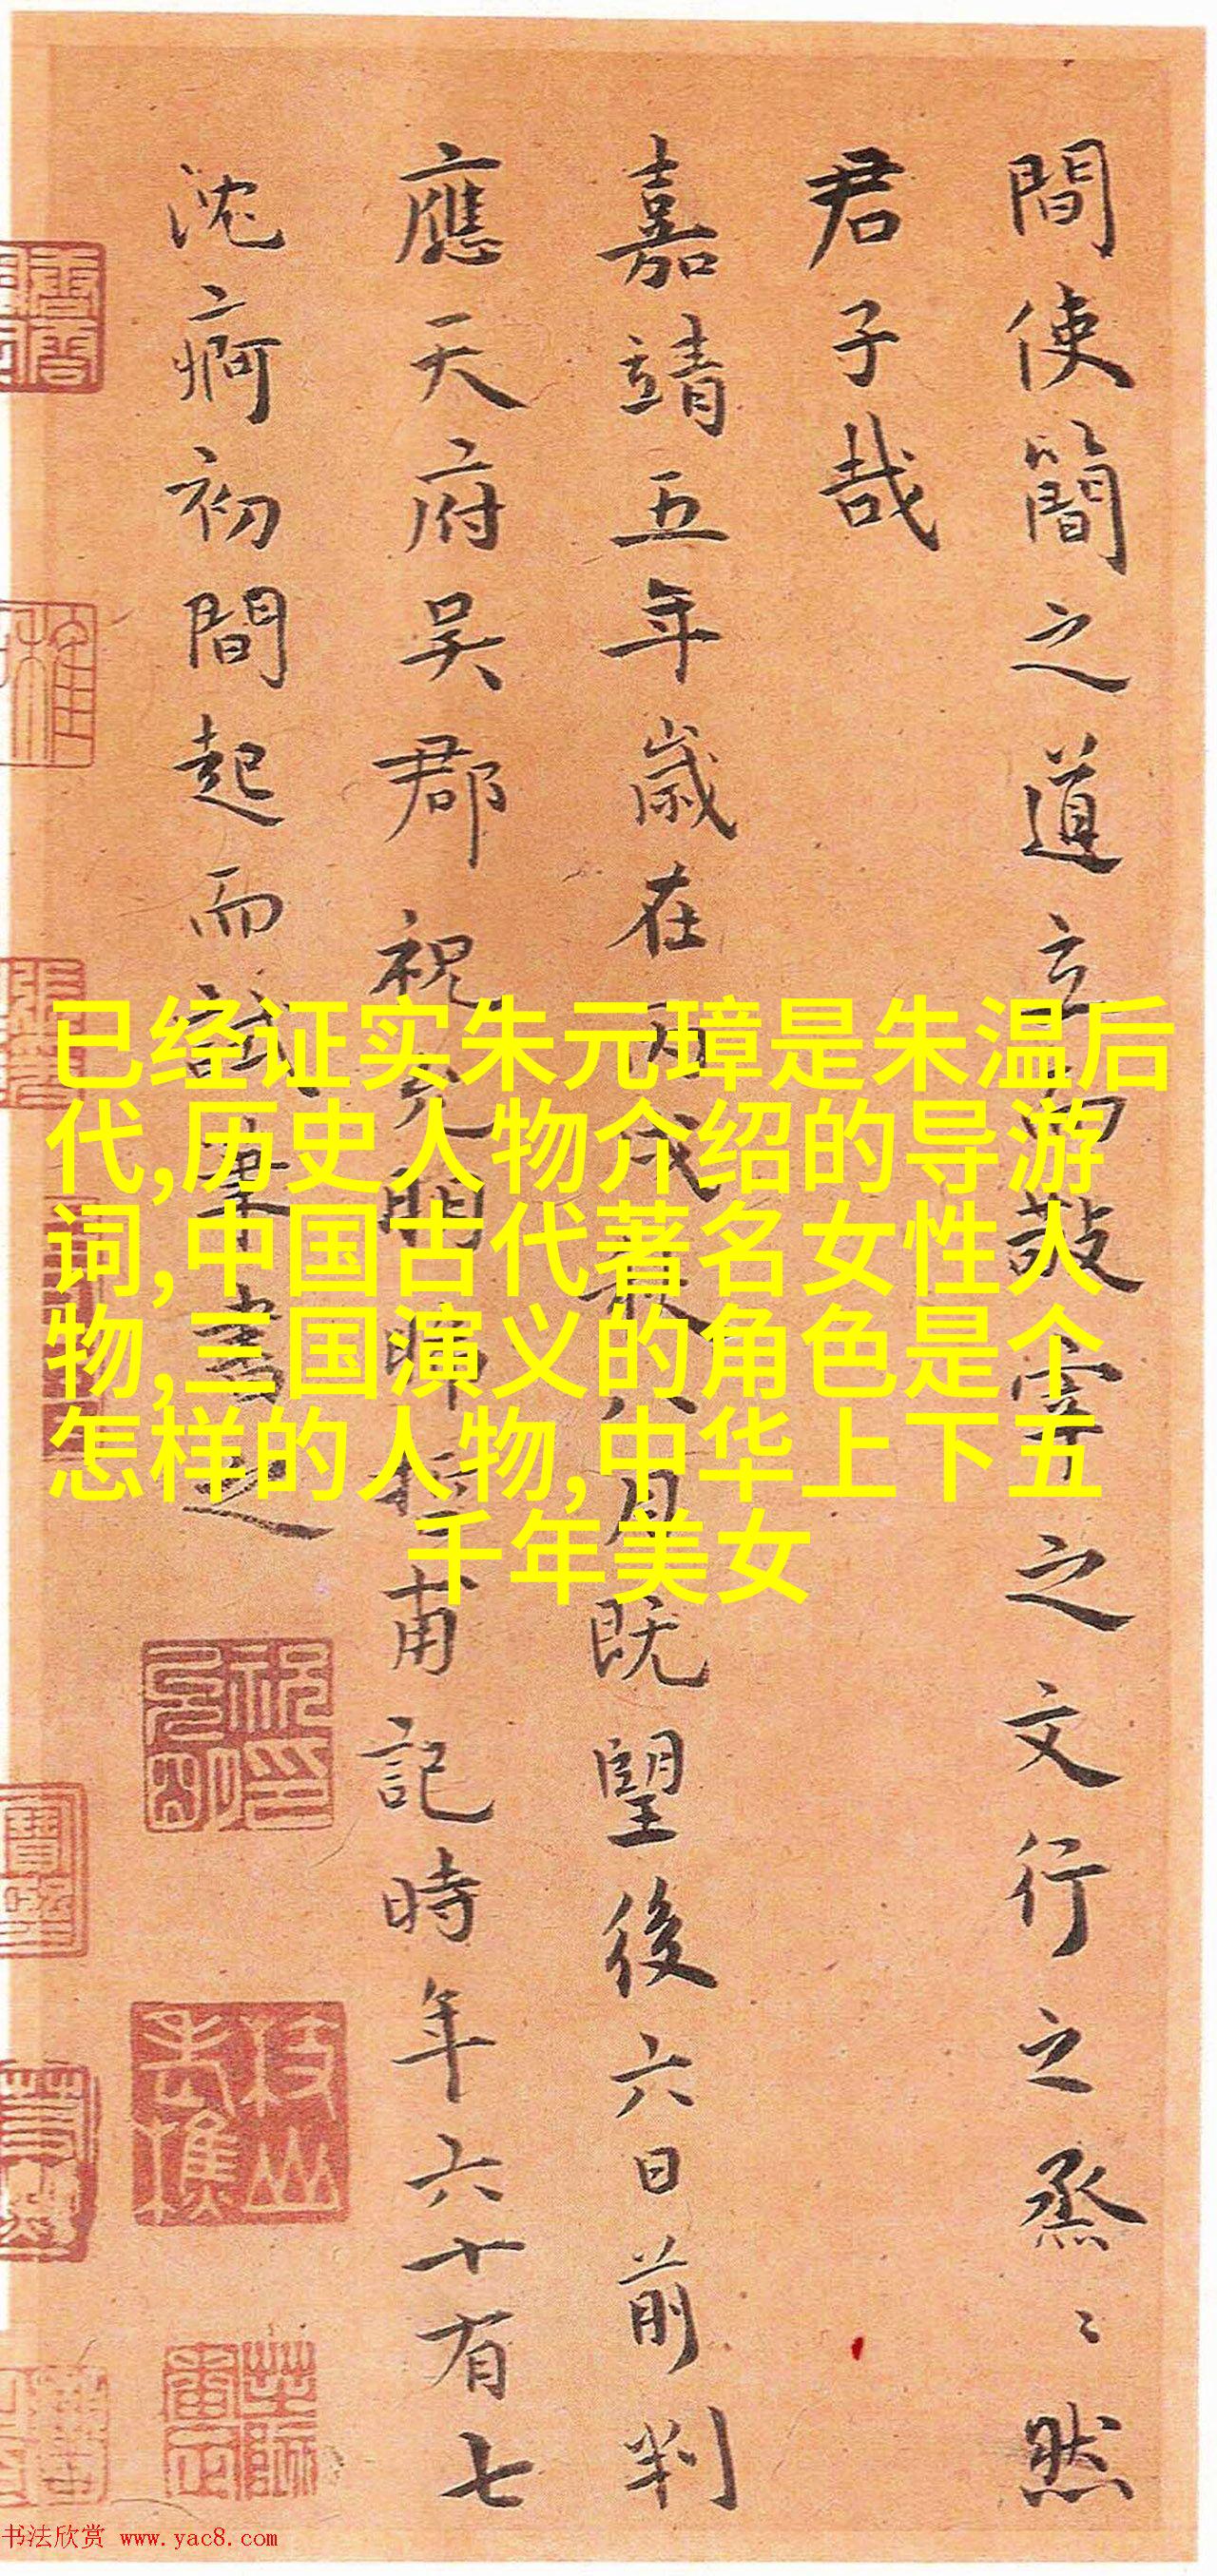 間使簡之道立而敬寔之文行之烝〻然
君子哉
嘉靖五年歲在丙戌最八月既望後六日前判
應天府吳郡祝允明晞哲甫記時年六十有七
沈痾初間起而試筆書之
已经证实朱元璋是朱温后
代,历史人物介绍的导游
词,中国古代著名女性人
物,三国演义的角色是个
怎样的人物,中华上下五
千年美女
书法欣赏 www.yac8.com